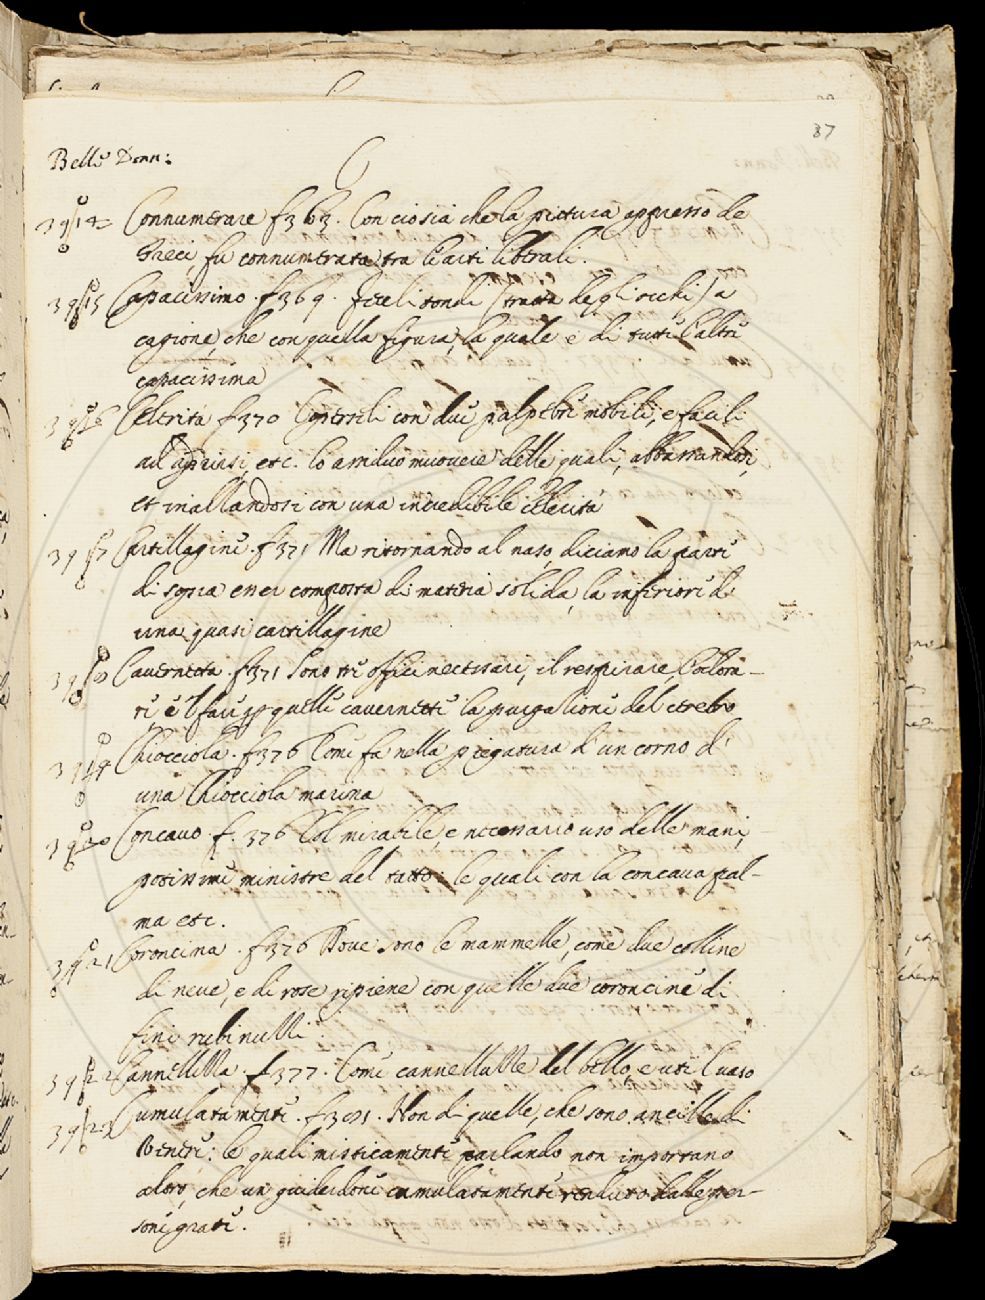 87
Bell: Donn:
C
3914 Connumerare f 363. Con ciosia che la pictura appresso de
Greci, fu connumerata tra le arti liberali.
3915 Capacissimo. f 369. Feceli tondi (tratta degli occhi) a
cagione, che con quella figura, la quale è di tutte l'altre
capacissima
3916 Celerità f 370 Copersili con due palpebre mobili, e facili
ad aprirsi, etc. lo assiduo muovere delle quali, abbassandosi,
et inalzandosi con una incredibile celerità
3917 Cartillagine. f 371 Ma ritornando al naso, diciamo la parte
di sopra esser composta di materia solida, la inferiore di
una quasi cartillagine
Cavernetta. f 371 Sono tre offici necessari, il respirare, l'odora-
re, e'l far p quelle cavernette la purgatione del cerebro
3919 Chiocciola. f 376 Come fa nella piegatura d'un corno di
una Chiocciola marina
3920 Concavo. f. 376 Col mirabile, e necessario uso delle mani,
potissime ministre del tatto: le quali con la concava pal-
ma etc.
3921 Coroncina. f 376 Dove sono le mammelle, come due colline
di neve, e di rose ripiene con quelle due coroncine di
fini rubinetti
3922 Cannelletta. f 377. Come cannellette del bello, e util vaso
3923 Cumulatamente. f 381. Non di quelle, che sono ancille di
Venere: le quali misticamente parlando non importano
altro, che un guiderdone cumulatamente renduto dalle per-
sone grate.